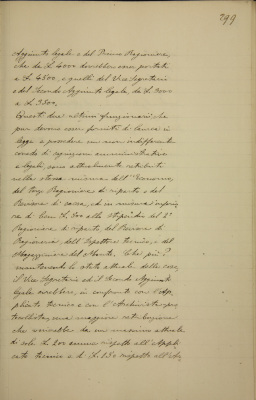 299
Aggiunto legale e del Primo Ragioniere,
che da L. 4000 dovrebbe esser portata
a L. 4500, e quelli del Vice Segretario
e del Secondo Aggiunto legale, da L. 3000
a L. 3500.
Questi due ultimi funzionari, che
pur devono esser forniti di laurea in
legge e possedere un non indifferente
corredo di cognizioni amministrative
e legali, sono attualmente retribuiti
nella stessa misura dell'Economo,
del terzo Ragioniere di reparto e del
Revisore di cassa, ed in misura inferio
re di Lire L. 500 allo stipendio del 2°
Ragioniere di reparto, del Revisore di
Ragioneria, dell'Ispettore tecnico, e del
Magazziniere del Monte. Che più?
mantenendo lo stato attuale delle cose,
il Vice Segretario ed il Secondo Aggiunto
legale avrebbero, in confronto con l'Ap
plicato tecnico e con l'Archivista pro
tocollista, una maggiore retribuzione
che varierebbe da un massimo attuale
di sole L. 200 annue rispetto all'Appli
cato tecnico e di L. 250 rispetto all'Ar